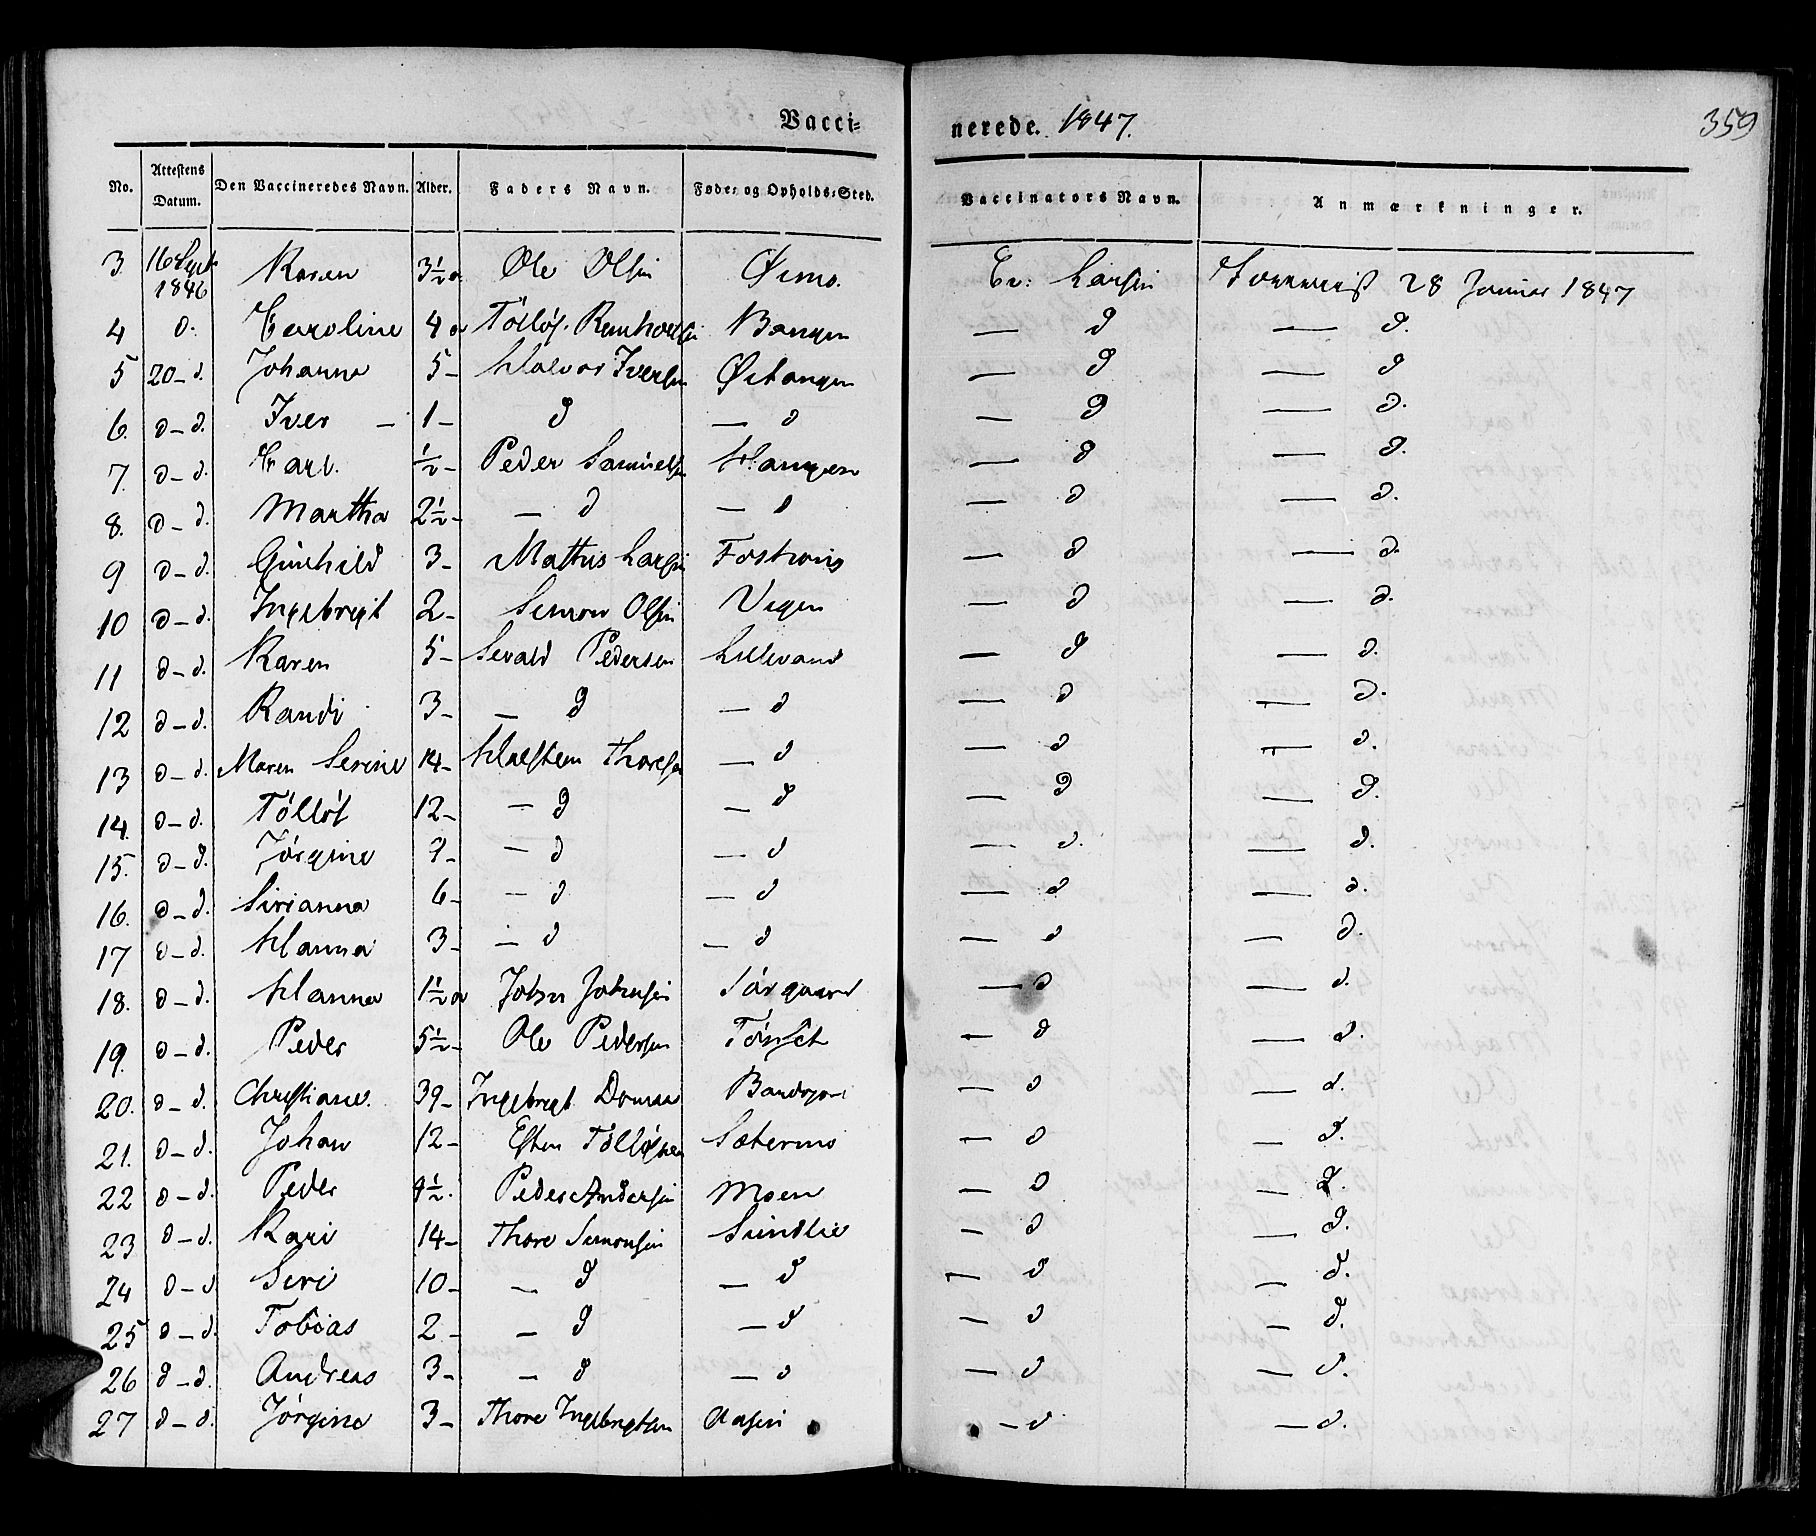 Vacci-
nerede. 1847.
359
No. Attestens Datum. Den Vaccineredes Navn. Alder. Faders Navn. Føde- og Opholds-Sted. Vaccinators Navn. Anmærkninger.
3. 16 Sept 1846 Karen 3½ a Ole Olsen Øimo. Er: Larsen 28 Januar 1847
4 d. Caroline 4 a Tølløf Bangen — d — d.
5 20 - d. Johanna 5 - Halvor Iversen Østangen — d — d
6. d - d. Iver - 1 - d — d — d — d.
7. d - d. Carl. ½ - Peder Samuelsen Haugen — d — d.
8. d - d. Martha 2½ - — d — d — d — d.
9 d - d. Gunhild 3 - Mattis Larsen — d — d.
10 d - d. Ingebrigt 2 - Simon Olsen Vigen — d — d.
11 d - d. Karen 5 - Sevald Pedersen Lillevand — d — d.
12 d - d. Randi 3 - — d — d — d — d.
13 d - d. Maren Serine 14 - Halsten Thoresen — d — d — d.
14. d - d. Tølløf 12 - — d — d — d — d.
15. d - d. Jørgine 9 - — d — d — d. — d.
16. d - d. Sirianna 6 - — d — d — d — d.
17 d - d. Hanna 3 - — d — d — d — d.
18. d - d. Hanna 1½ a John Johnsen Torgaard — d — d.
19. d - d. Peder 5½ - Ole Pedersen Tønset — d — d.
20. d - d. Christiane. 39 - Ingebrigt — d — d.
21. d - d. Johan 12 - Esten Tølløfsen Sætermo — d — d.
22 d - d. Peder 9½. Peder Andersen Moen — d — d.
23 d - d. Kari 14 - Thore Simonsen Sundlie — d — d.
24 d - d Seri 10 - — d — d — d — d.
25 d - d. Tobias 2 - — d — d — d — d.
26 d - d. Andreas 3 - — d — d — d — d.
27 d - d. Jørgine 3 - Thore Ingebrigtsen Aasen — d — d.